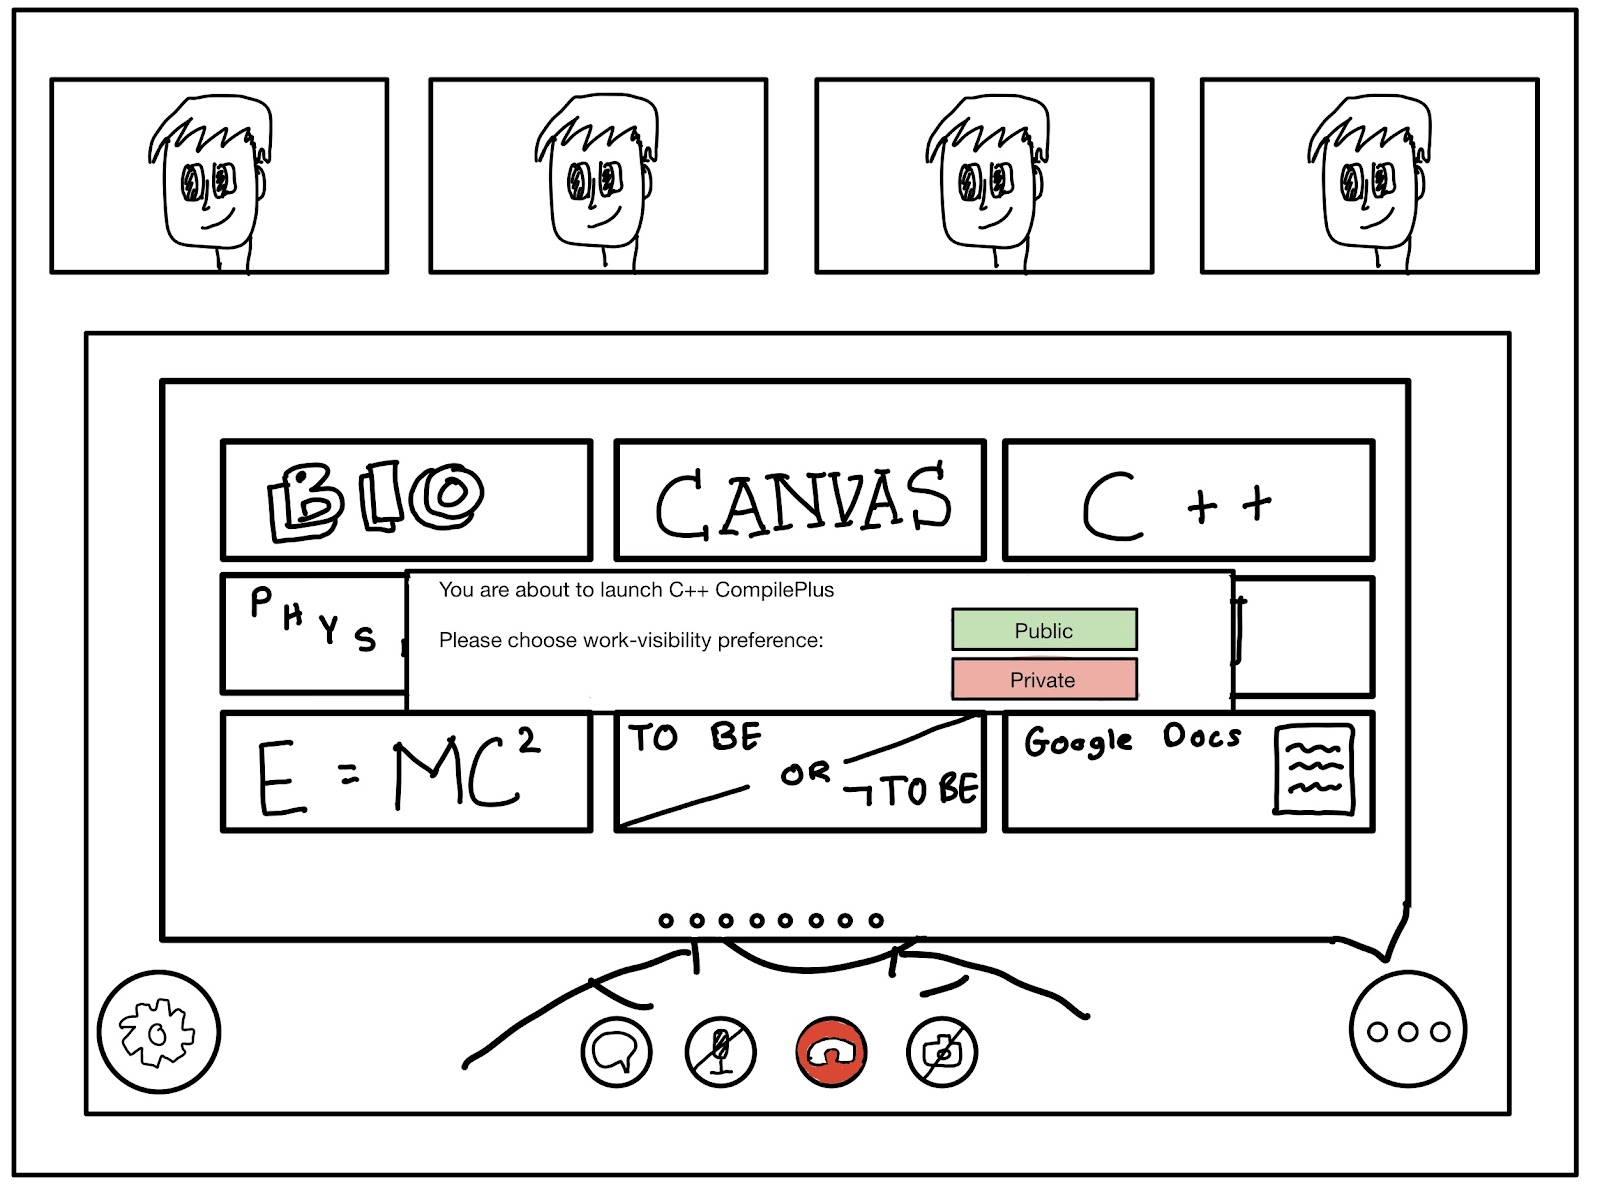 BIO
CANVAS
C ++
PHYS
You are about to launch C++ CompilePlus
Please choose work-visibility preference:
Public
Private
E = MC²
TO BE
OR
¬TO BE
Google Docs